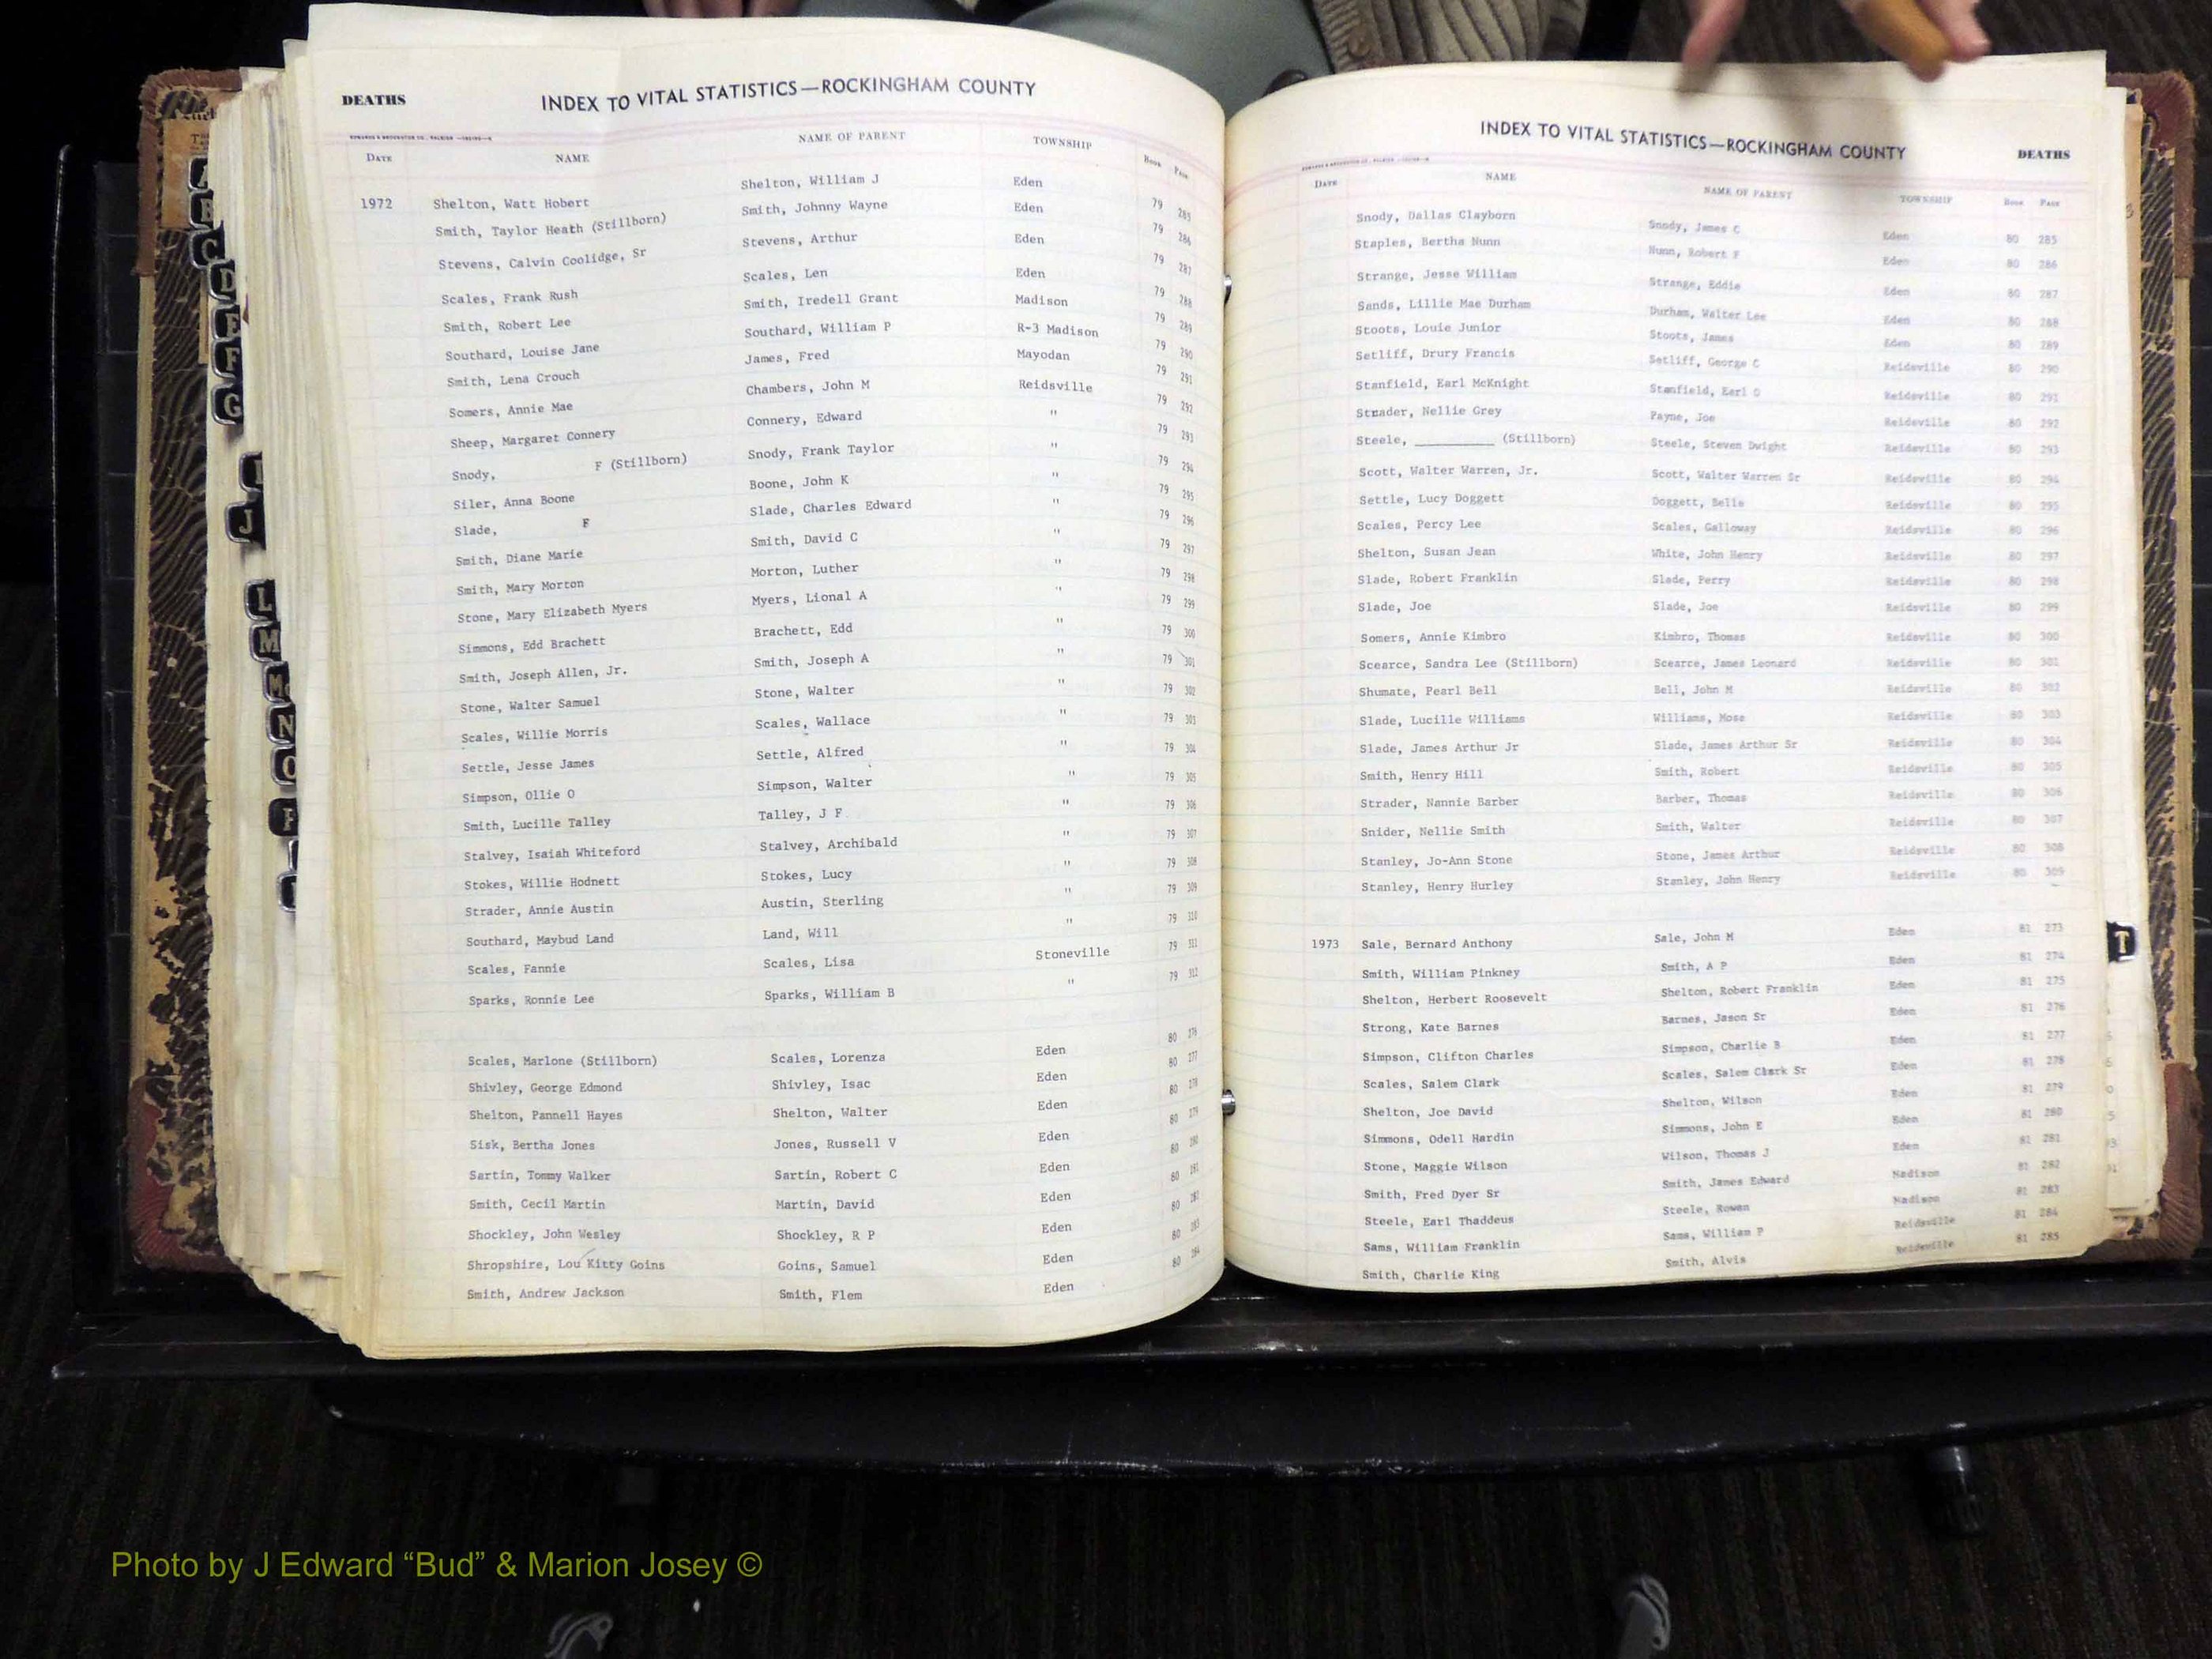 DEATHS INDEX TO VITAL STATISTICS—ROCKINGHAM COUNTY
DATE NAME NAME OF PARENT TOWNSHIP Book Page
1972 Shelton, Watt Hobert Shelton, William J Eden 79 285
Smith, Taylor Heath (Stillborn) Smith, Johnny Wayne Eden 79 286
Stevens, Calvin Coolidge, Sr Stevens, Arthur Eden 79 287
Scales, Frank Rush Scales, Len Eden 79 288
Smith, Robert Lee Smith, Iredell Grant Madison 79 289
Southard, Louise Jane Southard, William P R-3 Madison 79 290
Smith, Lena Crouch James, Fred Mayodan 79 291
Somers, Annie Mae Chambers, John M Reidsville 79 292
Sheep, Margaret Connery Connery, Edward " 79 293
Snody, F (Stillborn) Snody, Frank Taylor " 79 294
Siler, Anna Boone Boone, John K " 79 295
Slade, F Slade, Charles Edward " 79 296
Smith, Diane Marie Smith, David C " 79 297
Smith, Mary Morton Morton, Luther " 79 298
Stone, Mary Elizabeth Myers Myers, Lional A " 79 299
Simmons, Edd Brachett Brachett, Edd " 79 300
Smith, Joseph Allen, Jr. Smith, Joseph A " 79 301
Stone, Walter Samuel Stone, Walter " 79 302
Scales, Willie Morris Scales, Wallace " 79 303
Settle, Jesse James Settle, Alfred " 79 304
Simpson, Ollie O Simpson, Walter " 79 305
Smith, Lucille Talley Talley, J F " 79 306
Stalvey, Isaiah Whiteford Stalvey, Archibald " 79 307
Stokes, Willie Hodnett Stokes, Lucy " 79 308
Strader, Annie Austin Austin, Sterling " 79 309
Southard, Maybud Land Land, Will " 79 310
Scales, Fannie Scales, Lisa Stoneville 79 311
Sparks, Ronnie Lee Sparks, William B " 79 312
Scales, Marlone (Stillborn) Scales, Lorenza Eden 80 276
Shivley, George Edmond Shivley, Isac Eden 80 277
Shelton, Pannell Hayes Shelton, Walter Eden 80 278
Sisk, Bertha Jones Jones, Russell V Eden 80 279
Sartin, Tommy Walker Sartin, Robert C Eden 80 280
Smith, Cecil Martin Martin, David Eden 80 281
Shockley, John Wesley Shockley, R P Eden 80 282
Shropshire, Lou Kitty Goins Goins, Samuel Eden 80 283
Smith, Andrew Jackson Smith, Flem Eden 80 284
INDEX TO VITAL STATISTICS—ROCKINGHAM COUNTY DEATHS
DATE NAME NAME OF PARENT TOWNSHIP Book Page
Snody, Dallas Clayborn Snody, James C Eden 80 285
Staples, Bertha Nunn Nunn, Robert F Eden 80 286
Strange, Jesse William Strange, Eddie Eden 80 287
Sands, Lillie Mae Durham Durham, Walter Lee Eden 80 288
Stoots, Louie Junior Stoots, James Eden 80 289
Setliff, Drury Francis Setliff, George C Reidsville 80 290
Stanfield, Earl McKnight Stanfield, Earl O Reidsville 80 291
Strader, Nellie Grey Payne, Joe Reidsville 80 292
Steele, __________ (Stillborn) Steele, Steven Dwight Reidsville 80 293
Scott, Walter Warren, Jr. Scott, Walter Warren Sr Reidsville 80 294
Settle, Lucy Doggett Doggett, Belle Reidsville 80 295
Scales, Percy Lee Scales, Galloway Reidsville 80 296
Shelton, Susan Jean White, John Henry Reidsville 80 297
Slade, Robert Franklin Slade, Perry Reidsville 80 298
Slade, Joe Slade, Joe Reidsville 80 299
Somers, Annie Kimbro Kimbro, Thomas Reidsville 80 300
Scearce, Sandra Lee (Stillborn) Scearce, James Leonard Reidsville 80 301
Shumate, Pearl Bell Bell, John M Reidsville 80 302
Slade, Lucille Williams Williams, Mose Reidsville 80 303
Slade, James Arthur Jr Slade, James Arthur Sr Reidsville 80 304
Smith, Henry Hill Smith, Robert Reidsville 80 305
Strader, Nannie Barber Barber, Thomas Reidsville 80 306
Snider, Nellie Smith Smith, Walter Reidsville 80 307
Stanley, Jo-Ann Stone Stone, James Arthur Reidsville 80 308
Stanley, Henry Hurley Stanley, John Henry Reidsville 80 309
1973 Sale, Bernard Anthony Sale, John M Eden 81 273
Smith, William Pinkney Smith, A P Eden 81 274
Shelton, Herbert Roosevelt Shelton, Robert Franklin Eden 81 275
Strong, Kate Barnes Barnes, Jason Sr Eden 81 276
Simpson, Clifton Charles Simpson, Charlie B Eden 81 277
Scales, Salem Clark Scales, Salem Clark Sr Eden 81 278
Shelton, Joe David Shelton, Wilson Eden 81 279
Simmons, Odell Hardin Simmons, John E Eden 81 280
Stone, Maggie Wilson Wilson, Thomas J Eden 81 281
Smith, Fred Dyer Sr Smith, James Edward Madison 81 282
Steele, Earl Thaddeus Steele, Rowan Madison 81 283
Sams, William Franklin Sams, William P Reidsville 81 284
Smith, Charlie King Smith, Alvis Reidsville 81 285
A
B
C
D
E
F
G
I
J
L
M
Mc
N
O
P
T
Photo by J Edward “Bud” & Marion Josey ©